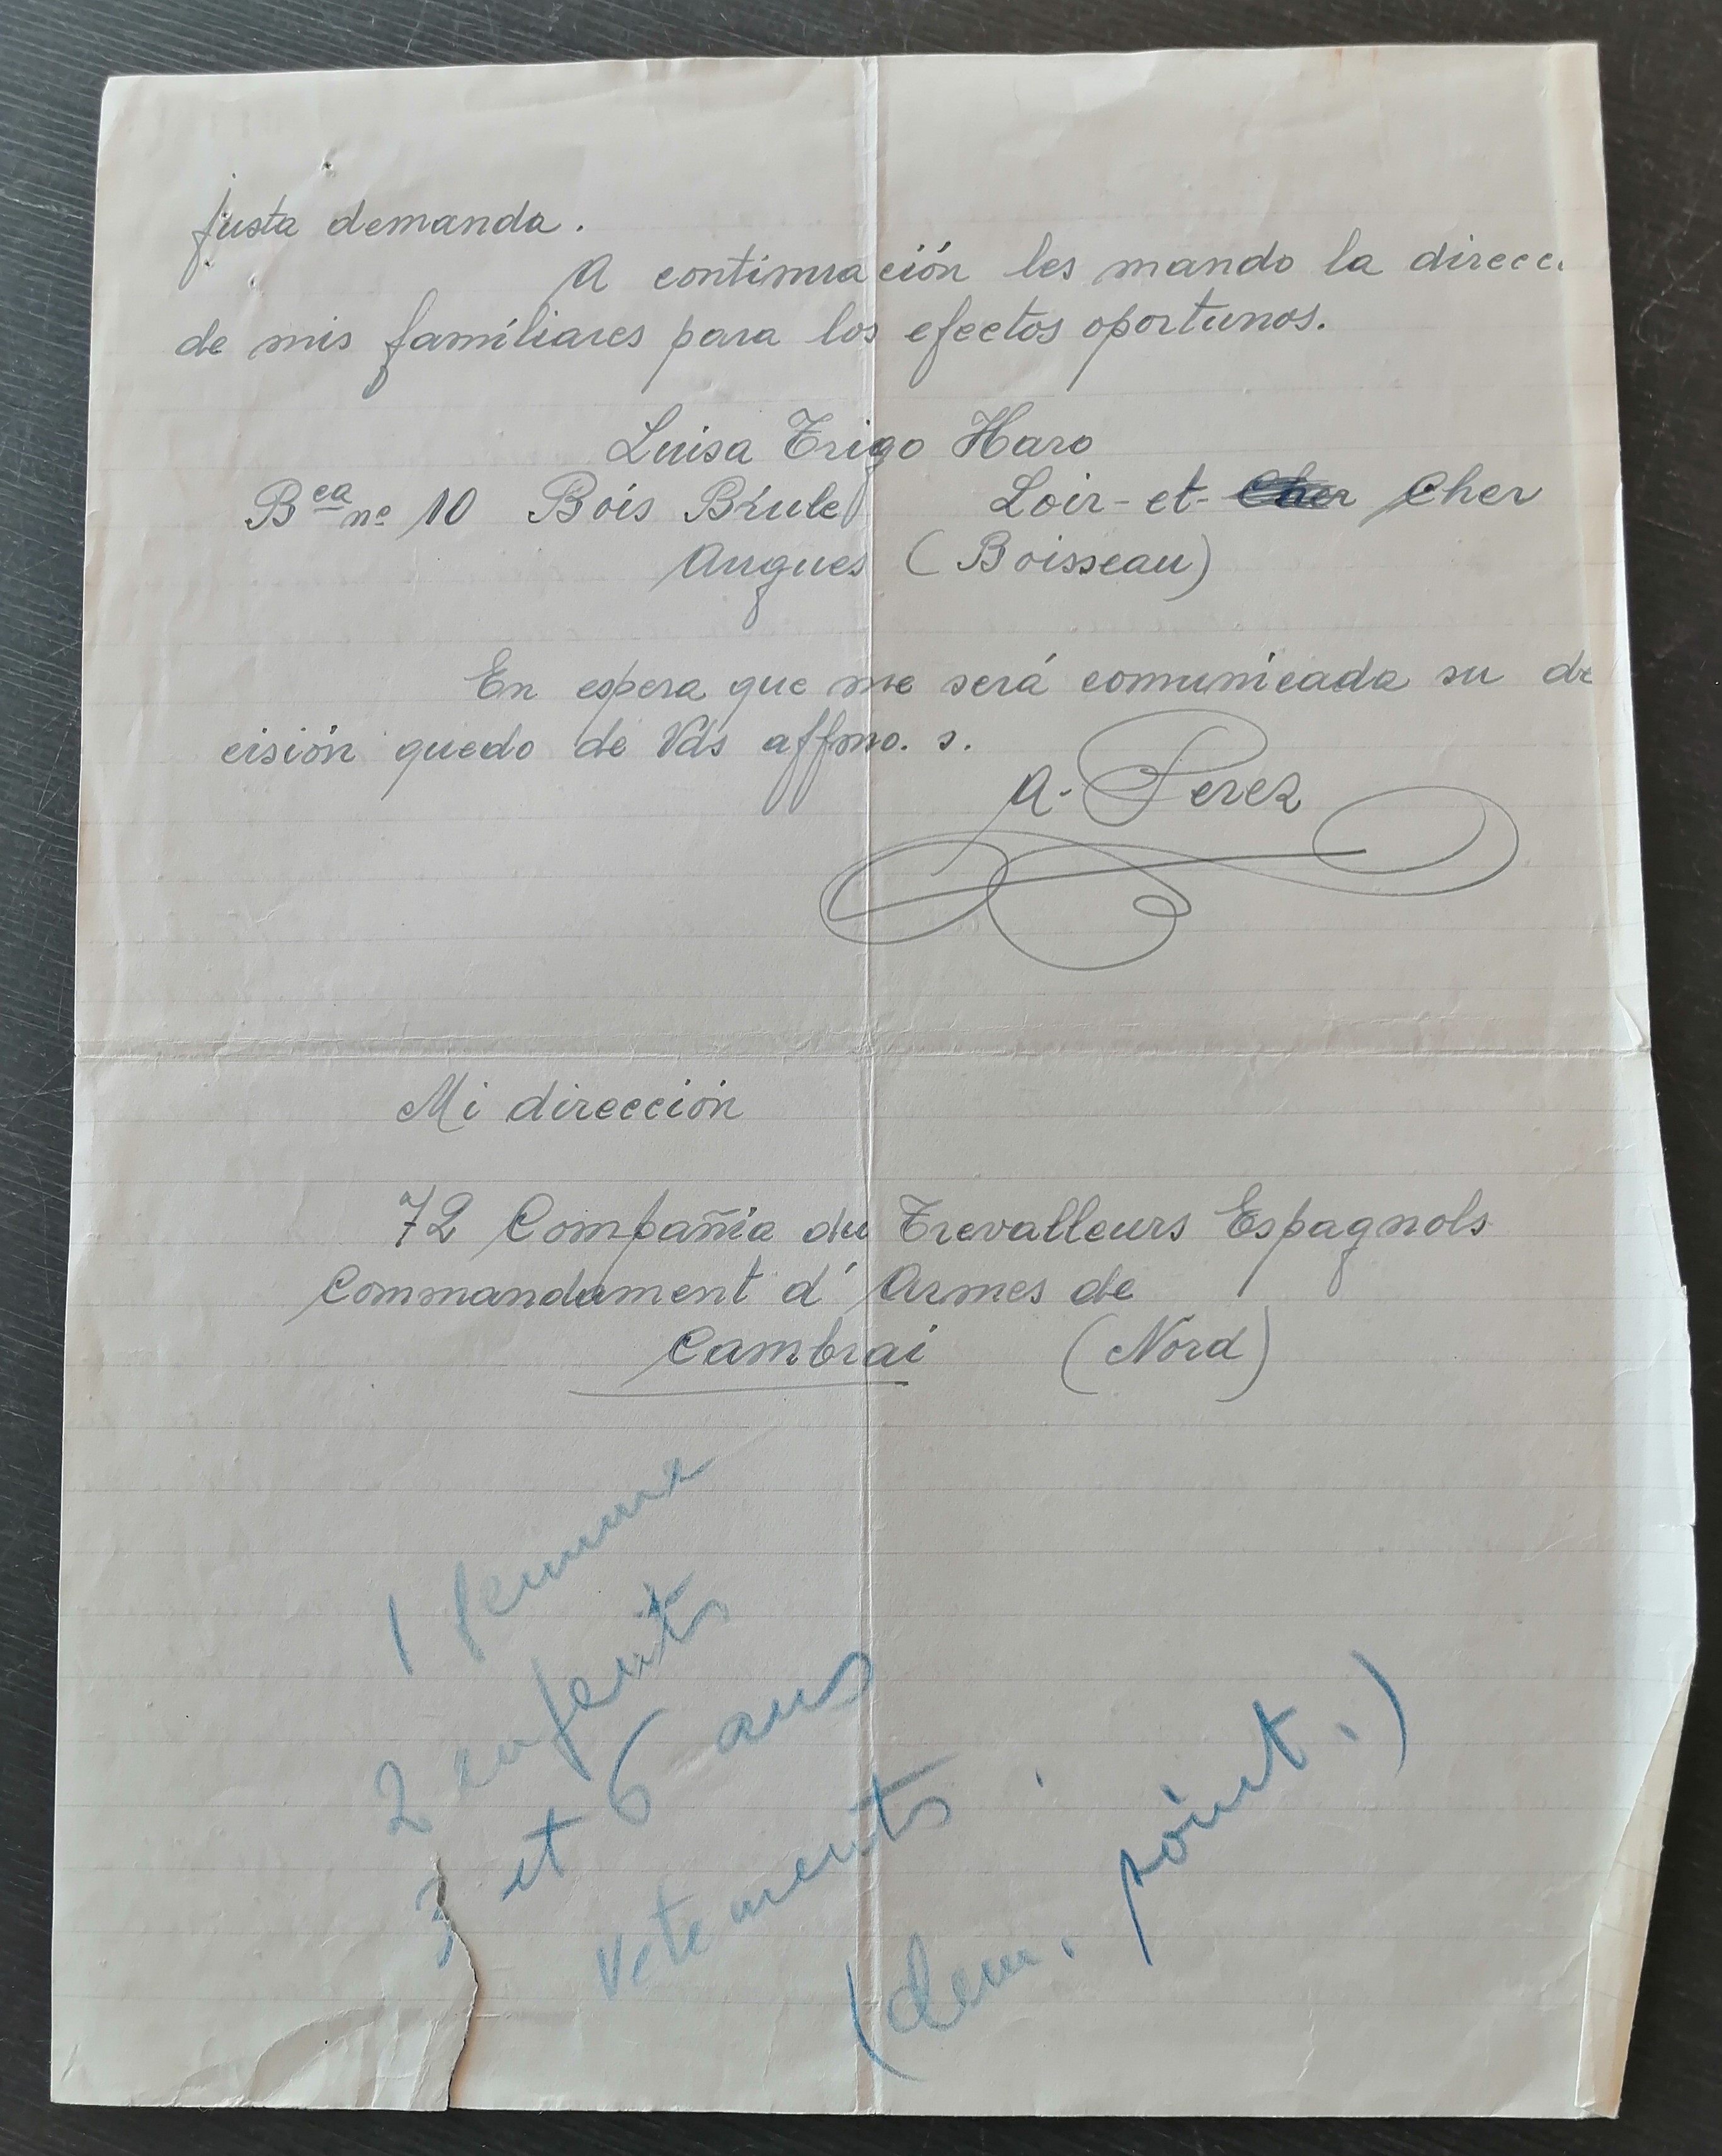 justa demanda.
A continuación les mando la direcc
de mis famíliares para los efectos oportunos.
Luisa Trigo Haro
Bca nº 10 Bois Brule Loir-et- Cher Cher
Augues (Boisseau)
En espera que me será comunicada su de
cisión quedo de Vds affmo. s.
A. Perez
Mi dirección
72 Compañia du Trevalleurs Espagnols
Commandament d' Armes de
Cambrai (Nord)
1 femme
2 enfants
3 et 6 ans
vetements
(dem. point.)